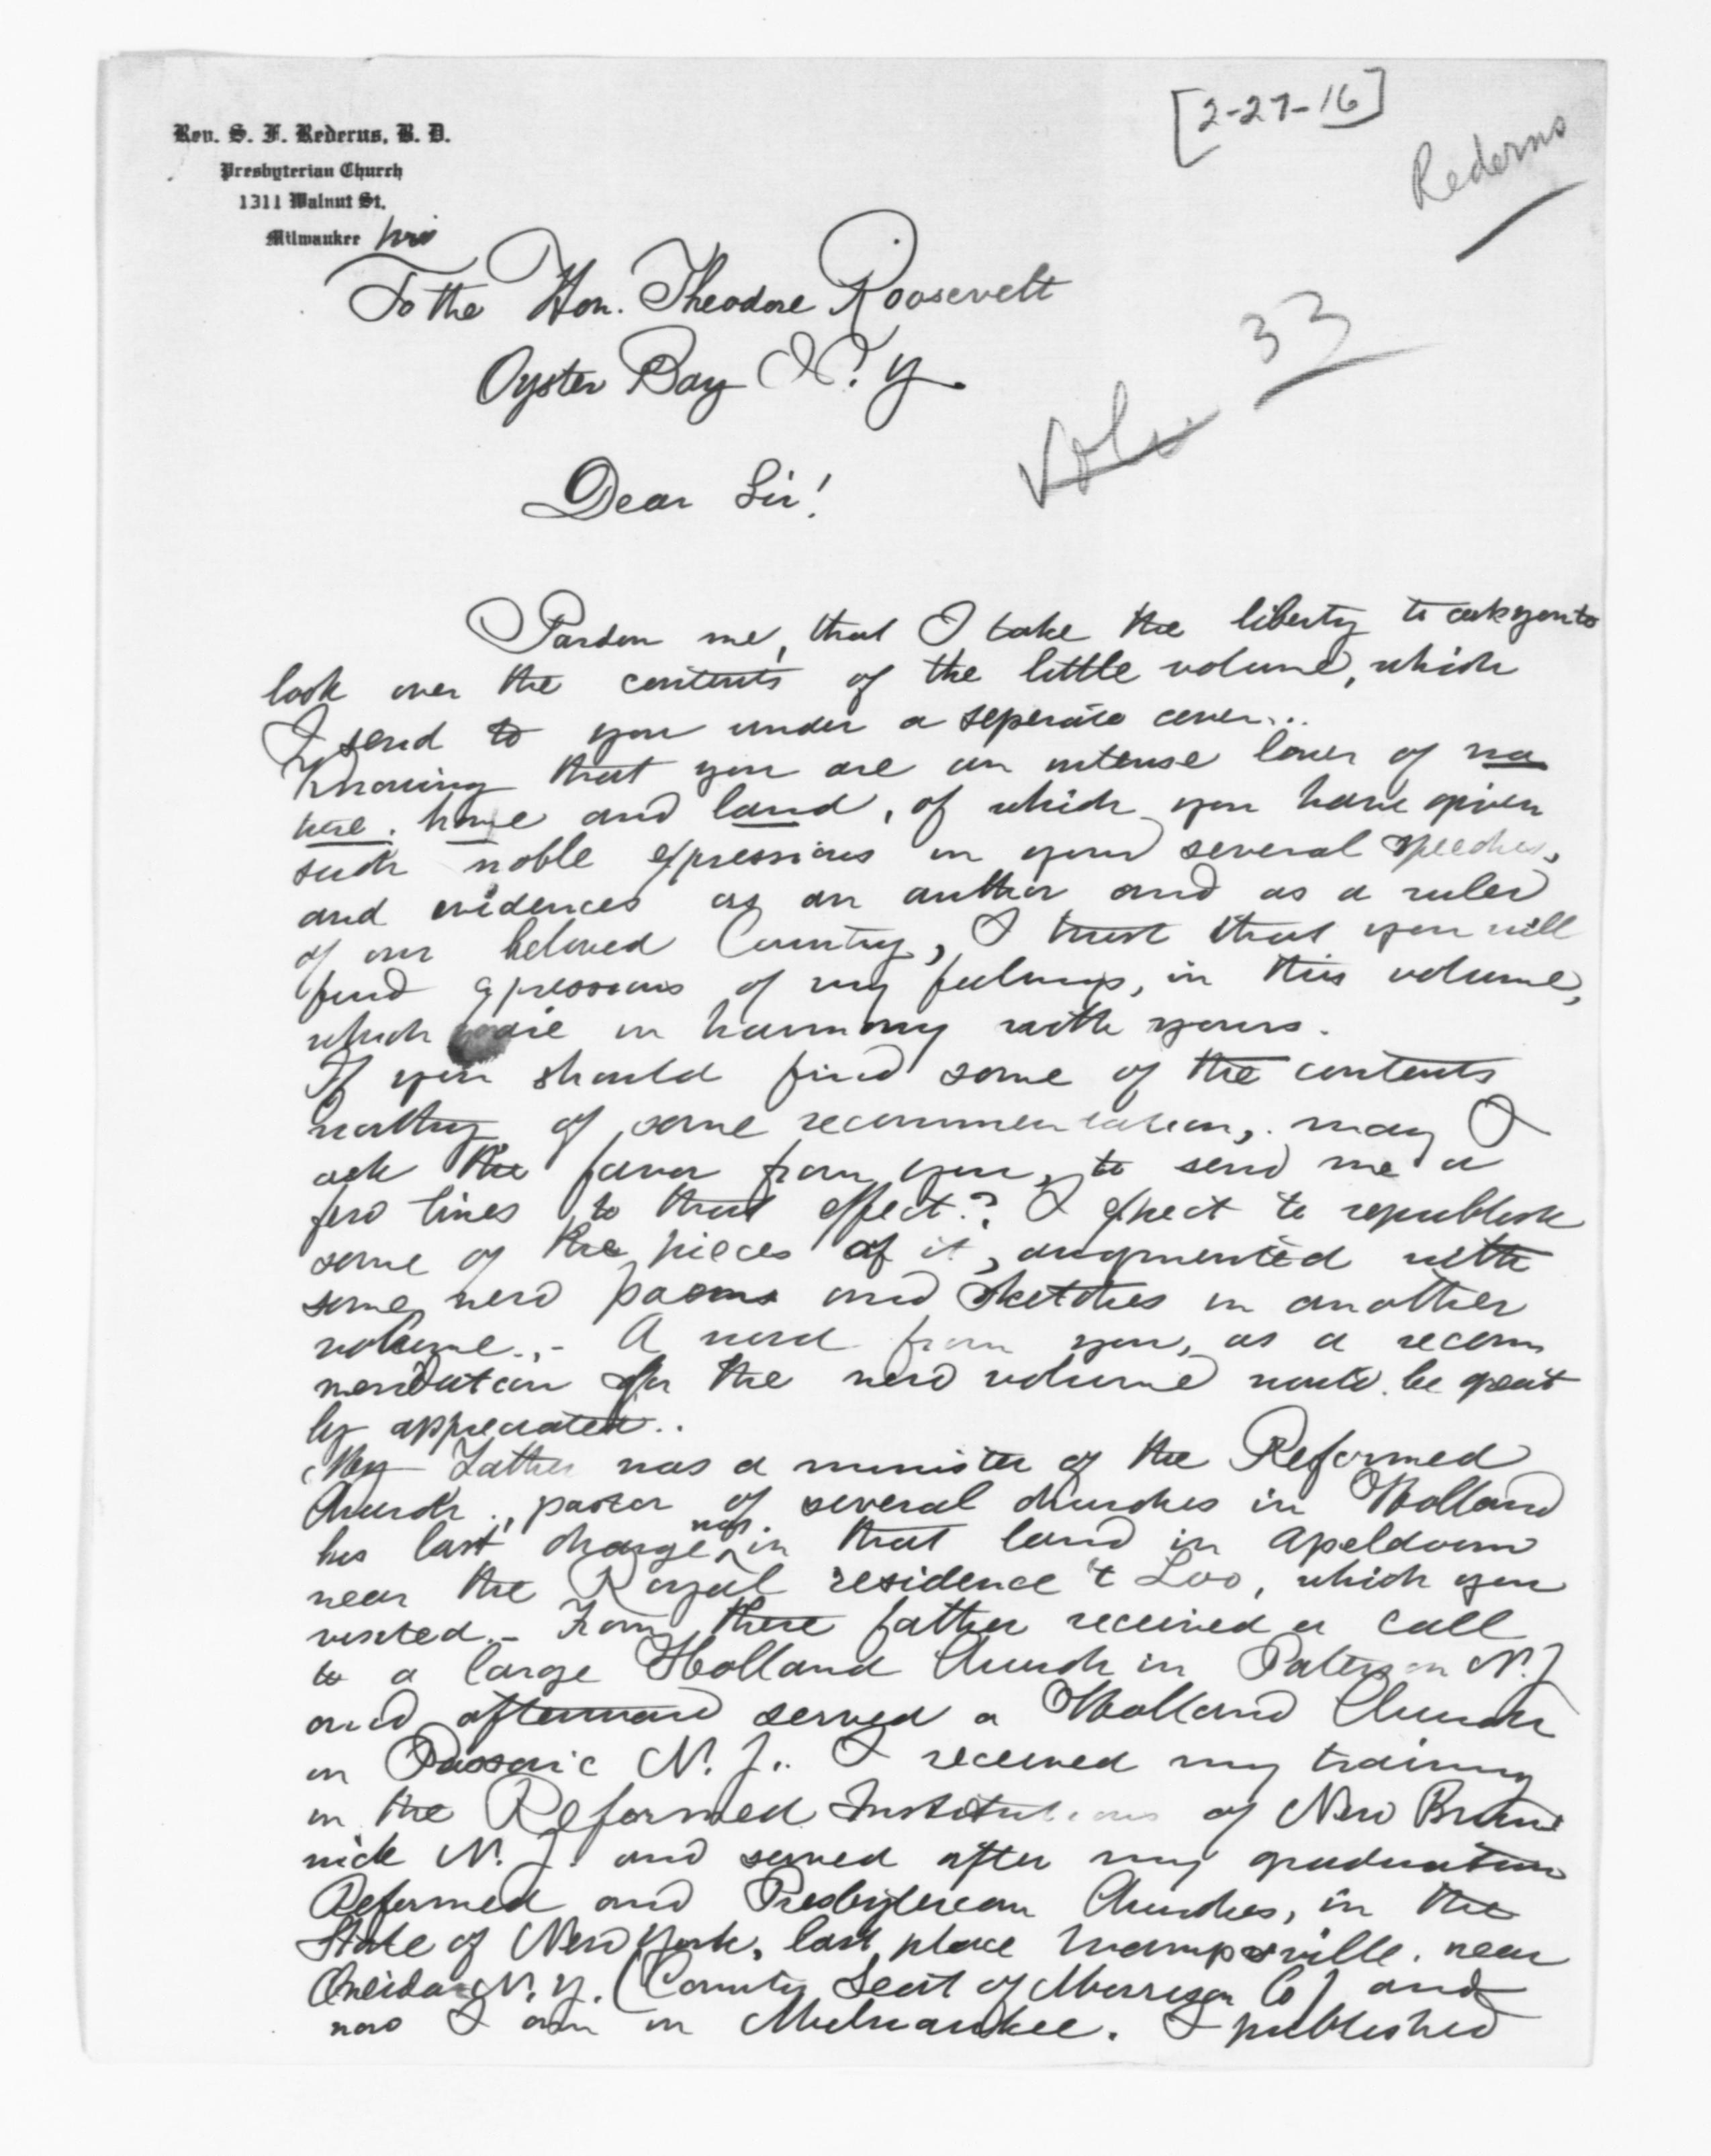 [2-27-16]
Rederus
Rev. S. F. Rederus, B. D.
Presbyterian Church
1311 Walnut St.
Milwaukee Wis
To the Hon. Theodore Roosevelt
Oyster Bay N. Y.
33
Dear Sir!
Pardon me, that I take the liberty to ask you to
look over the contents of the little volume, which
I send to you under a seperate cover...
Knowing that you are an intense lover of na
ture, home and land, of which you have given
such noble expressions in your several speeches,
and evidences as an author and as a ruler
of our beloved Country, I trust that you will
find expressions of my feelings, in this volume,
which are in harmony with yours.
If you should find some of the contents
worthy of some recommentation, may I
ask the favor from you, to send me a
few lines to that effect? I expect to republish
some of the pieces of it, augmented with
some new poems and sketches in another
volume.,- A word from you, as a recom
mendation for the new volume would be great
ly appreciated..
My Father was a minister of the Reformed
Church, pastor of several churches in Holland
his last charge was in that land in Apeldoorn
near the Royal residence 't Loo, which you
visited.- From there father received a call
to a large Holland Church in Paterson N.J
and afterward served a Holland Church
in Passaic N. J.. I received my training
in the Reformed Institutions of New Bruns
wick N. J. and served after my graduation
Reformed and Presbyterean Churches, in the
State of New York, last place Wampsville, near
Oneida N. Y. (County Seat of Co) and
now I am in Milwaukee. I published